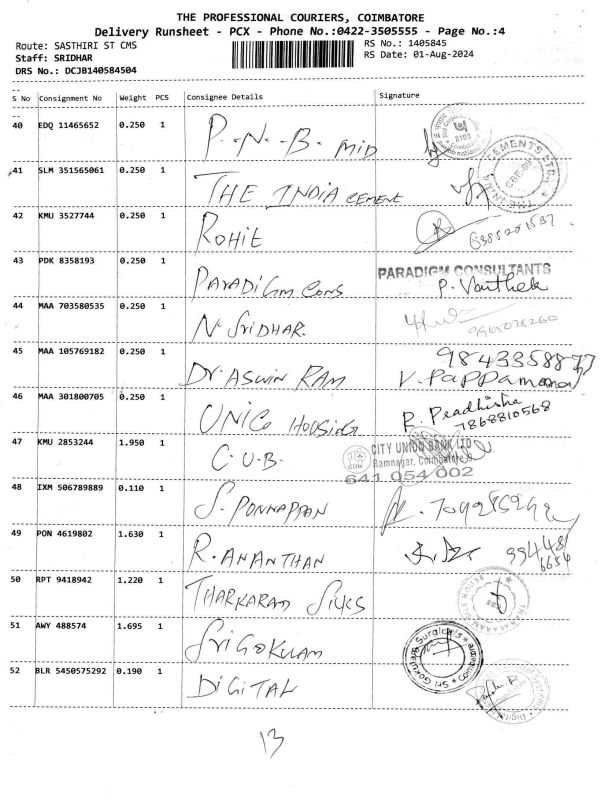 THE PROFESSIONAL COURIERS, COIMBATORE
Delivery Runsheet - PCX - Phone No.:0422-3505555 - Page No.:4
Route: SASTHIRI ST CMS RS No.: 1405845
Staff: SRIDHAR RS Date: 01-Aug-2024
DRS No.: DCJB140584504
S No Consignment No Weight PCS Consignee Details Signature
40 EDQ 11465652 0.250 1 P.N.B. MID
41 SLM 351565061 0.250 1 THE INDIA CEMENT
42 KMU 3527744 0.250 1 ROHIT
43 PDK 8358193 0.250 1 PARADIGM CONS PARADIGM CONSULTANTS
44 MAA 703580535 0.250 1 N. SRIDHAR.
45 MAA 105769182 0.250 1 Dr. ASWIN RAM V. Pappa
46 MAA 301800705 0.250 1 UNICO HOUSING R. Pradhisha 7868810568
47 KMU 2853244 1.950 1 C.U.B. CITY UNION BANK LTD
Ramnagar, Coimbatore
641 054 002
48 IXM 506789889 0.110 1 S. PONNAPPAN
49 PON 4619802 1.630 1 R. ANANTHAN
50 RPT 9418942 1.220 1 THARKARAM SILKS
51 AWY 488574 1.695 1 SRI GOKULAM Sri Gokulam Surgicals Coimbatore
52 BLR 5450575292 0.190 1 DIGITAL
13